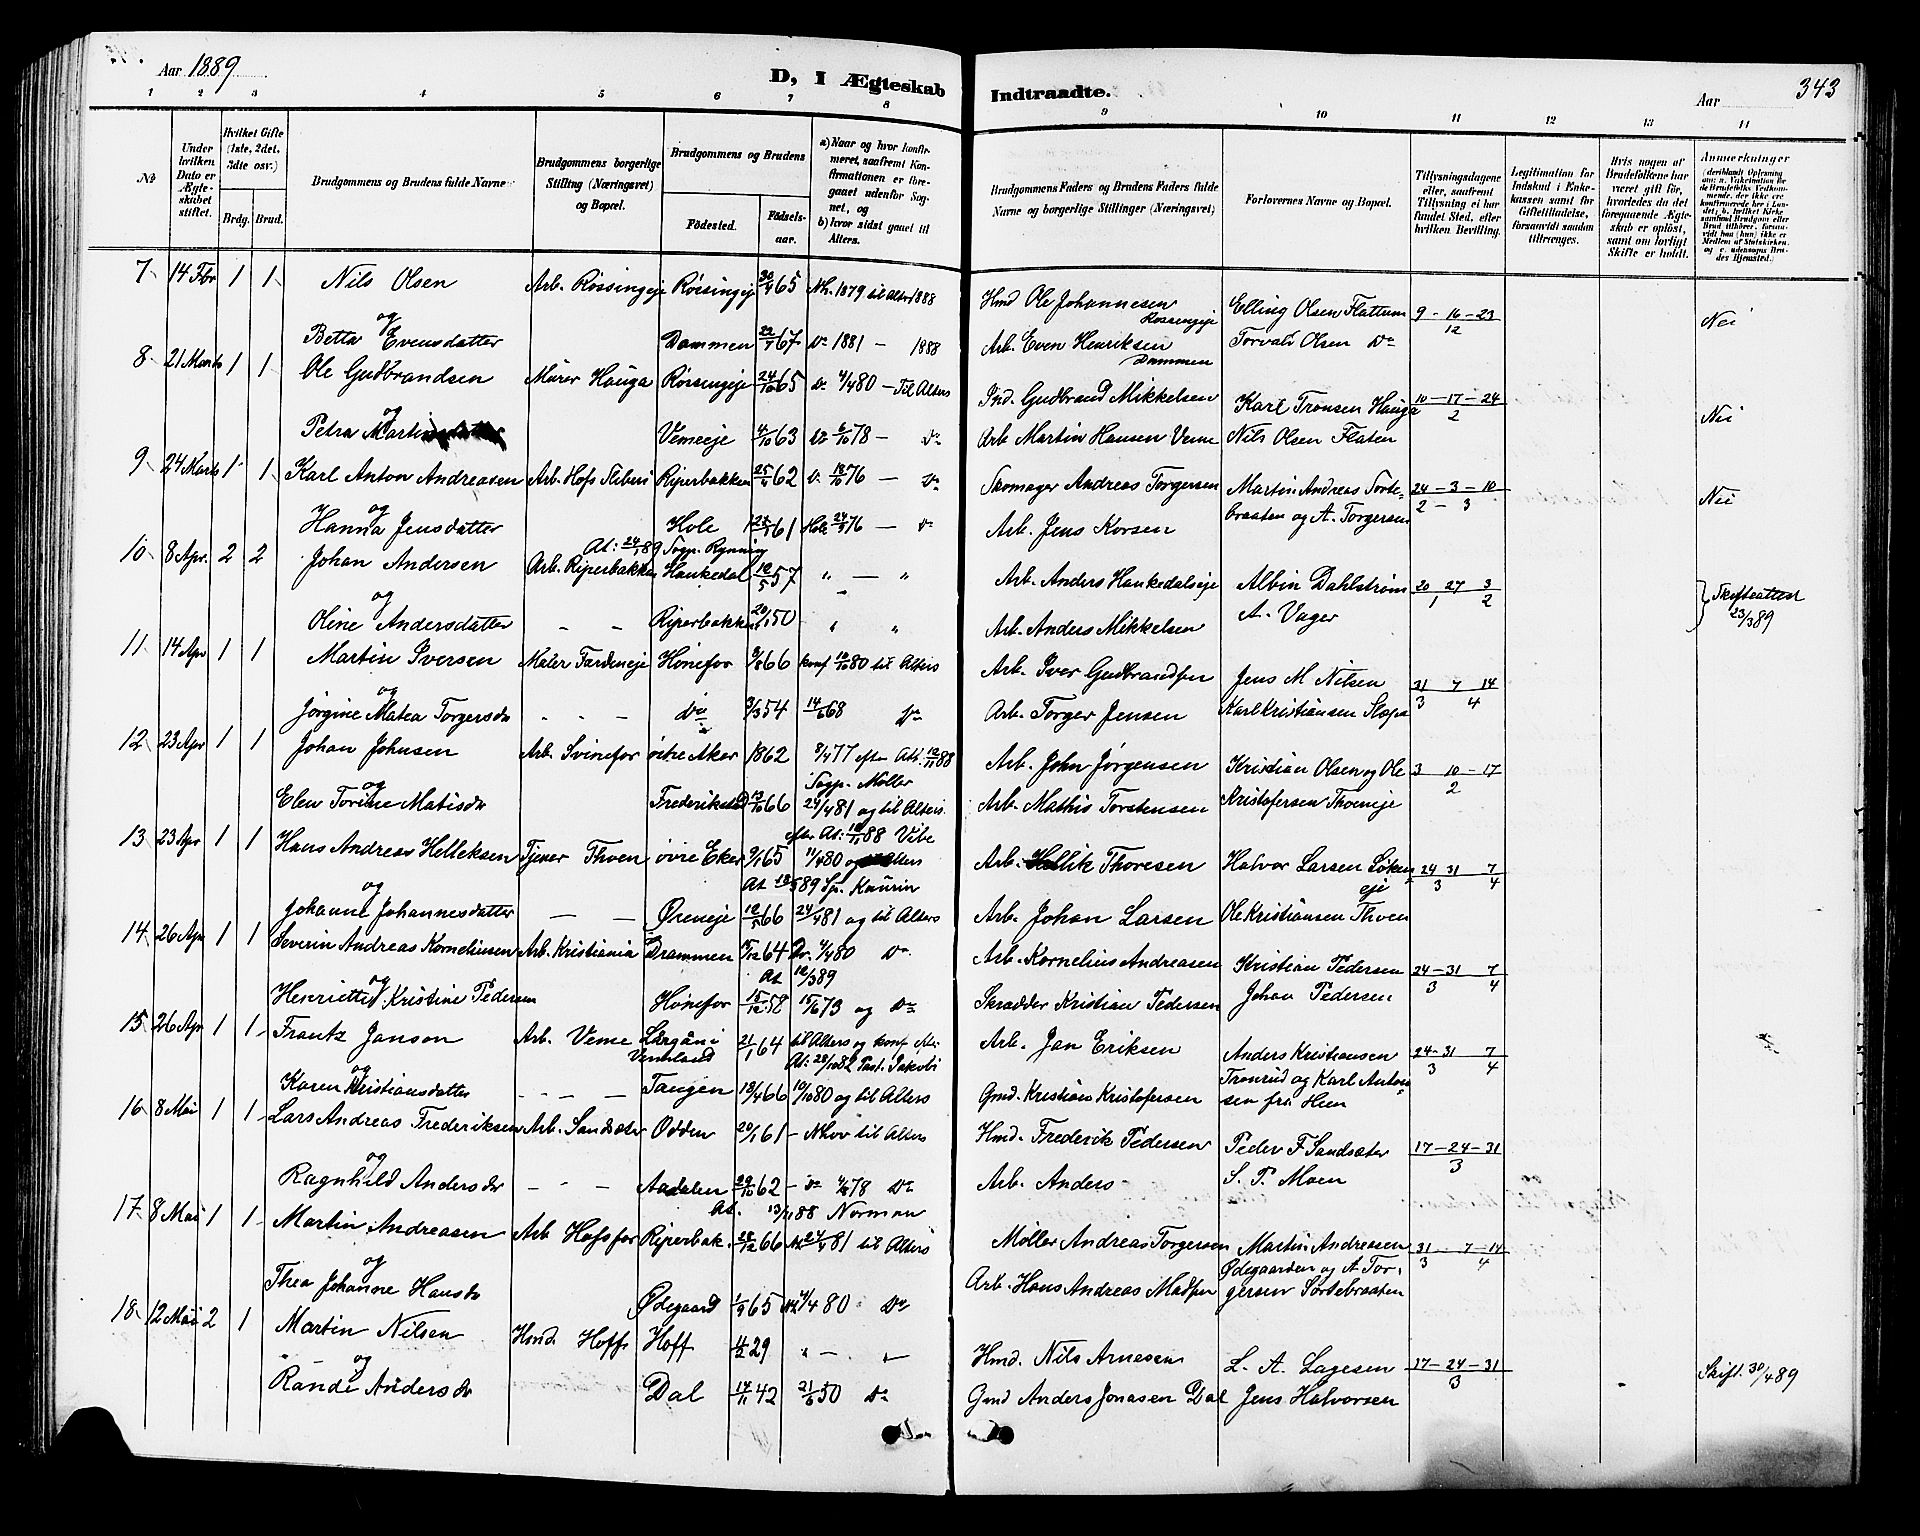 Aar 1889
D, I Ægteskab Indtraadte.
Aar 343
1 2 3 4 5 6 7 8 9 10 11 12 13 14
No
Under hvilken Dato er Ægteskabet stiftet.
Hvilket Gifte (1ste, 2det, 3die osv.)
Brdg. Brud.
Brudgommens og Brudens fulde Navne
Brudgommens borgerlige Stilling (Næringsvei) og Bopæl.
Brudgommens og Brudens
Fødested. Fødselsaar.
a) Naar og hvor konfirmeret, saafremt Konfirmationen er foregaaet udenfor Sognet, og
b) hvor sidst gaaet til Alters.
Brudgommens Faders og Brudens Faders fulde Navne og borgerlige Stillinger (Næringsvei)
Forlovernes Navne og Bopæl.
Tillysningsdagene eller, saafremt Tillysning ei har fundet Sted, efter hvilken Bevilling.
Legitimation for Indskud i Enkekassen samt for Giftetilladelse, forsaavidt saadan tiltrænges.
Hvis nogen af Brudefolkene har været gift før, hvorledes da det foregaaende Ægteskab er opløst, samt om lovligt Skifte er holdt.
Anmerkninger
7 14 Fbr 1 1 Nils Olsen Arb. Røssingeje Røssingeje 30/4 65 Nh. 1879 til Alters 1888 Hmd Ole Johannesen Røssingeje Elling Olsen Flattum 9 - 16 - 23 / 12 Nei
og
Betta Evensdatter Dammen 67 Do 1881 - 1888 Arb. Even Henriksen Dammen Torvald Olsen Do
8 21 Marts 1 1 Ole Gudbrandsen Murer Hauga Røssingeje 24/10 65 Do 4/4 80 - Til Alters Ind. Gudbrand Mikkelsen Karl Tronsen Hauga 10 - 17 - 24 / 2 Nei
og
Petra Martinsdatter Vemeeje 4/10 63 6/10 78 - Do Arb Martin Hansen Veme Nils Olsen Flaten
9 24 Marts 1 1 Karl Anton Andreasen Arb. Hofs Sliberi Riperbakken 25/4 62 Do 76 - Do Skomager Andreas Torgersen Martin Andreas Sortebraaten og A. Torgersen 24 - 3 - 10 / 2 - 3 Nei
og
Hanna Jensdatter Hole 61 Hole 24/9 76 - Do Arb. Jens Korsen
At: 24/1 89 Sogp. Rynning
10 8 Apr. 2 2 Johan Andersen Arb. Riperbakken Haukedal 12/5 57 " - " Arb. Anders Haukedalseje Albin Dahlstrøm 20 27 3 / 1 2 Skifteattest 23/3 89
og
Oline Andersdatter - - Riperbakken 50 " " Arb. Anders Mikkelsen A. Vager
11 14 Apr 1 1 Martin Iversen Maler Hønefos 9/8 66 konf 80 til Alters Arb. Iver Gudbrandsen Jens M Nilsen 31 7 14 / 3 4
og
Jørgine Matea Torgersdr - - - Do 3/3 54 14/6 68 Do Arb. Torger Jensen Karl Kristiansen
12 23 Apr 1 1 Johan Johnsen Arb. Svinefos østre Aker 1862 8/4 77 efter Att. 88 Arb. John Jørgensen Kristian Olsen og Ole Kristofersen Thoeneje 3 10 - 17 / 2
og Sogp. Møller
Elen Torine Matisdr Frederikstad 66 24/4 81 og til Alters Arb. Mathis Torstensen
efter At: 88 Vibe
13 23 Apr 1 1 Hans Andreas Helleksen Tjener Thoen øvre Eker 9/1 65 11/4 80 og Alters Arb. Hellik Thoresen Halvor Larsen eje 24 31 7 / 3 4
og At 89 Sp. Kaurin
Johanne Johannesdatter - - Øreneje 12/5 66 24/4 81 og til Alters Arb. Johan Larsen Ole Kristiansen Thoen
14 26 Apr 1 1 Severin Andreas Korneliusen Arb. Kristiania Drammen 64 Dr. 4/4 80 Do Arb. Kornelius Andreasen Kristian Pedersen 24 - 31 7 / 3 4
og At 12/3 89
Henriette Kristine Pedersen Hønefos 15/12 58 73 og Do Skrædder Kristian Pedersen Johan Pedersen
15 26 Apr 1 1 Frantz Janson Arb. Veme Vermland 21/1 64 til Alters og konf Arb. Jan Eriksen Anders Kristiansen Tronrud og Karl Antonsen fra Heen 24 - 31 7 / 3 4
og At: 28/10 82 Past. Jakobi
Karen Kristiansdatter - - - Tangen 18/4 66 10/10 80 og til Alters Gmd. Kristian Kristofersen
16 8 Mai 1 1 Lars Andreas Frederiksen Arb. Sandsæter Odden 20/1 61 - Nhov til Alters Hmd. Frederik Pedersen Peder F Sandsæter 17 - 24 - 31 / 3
og
Ragnhild Andersdr - - - Aadalen 29/10 62 - Do 78 Do Arb. Anders - S. P. Moen
At. 13/11 88 Norman
17 8 Mai 1 1 Martin Andreasen Arb Hofsfos Riperbak. 28/12 66 24/4 81 til Alters Møller Andreas Torgersen Martin Andreasen Ødegaarden og A Torgersen Sortebraaten 31 - 7 - 14 / 3 4
og
Thea Johanne Hansdr Ødegaard 1/9 65 4/4 80 Do Arb. Hans Andreas Madsen
18 12 Mai 2 1 Martin Nilsen Hmd. Hoff Hoff 11/2 29 " - " Hmd. Nils Arnesen L. A. Lagesen 17 - 24 - 31 / 3 Skift. 30/4 89
og
Randi Andersdr Dal 14/11 42 21/6 50 Do Gmd Anders Jonasen Dal Jens Halvorsen